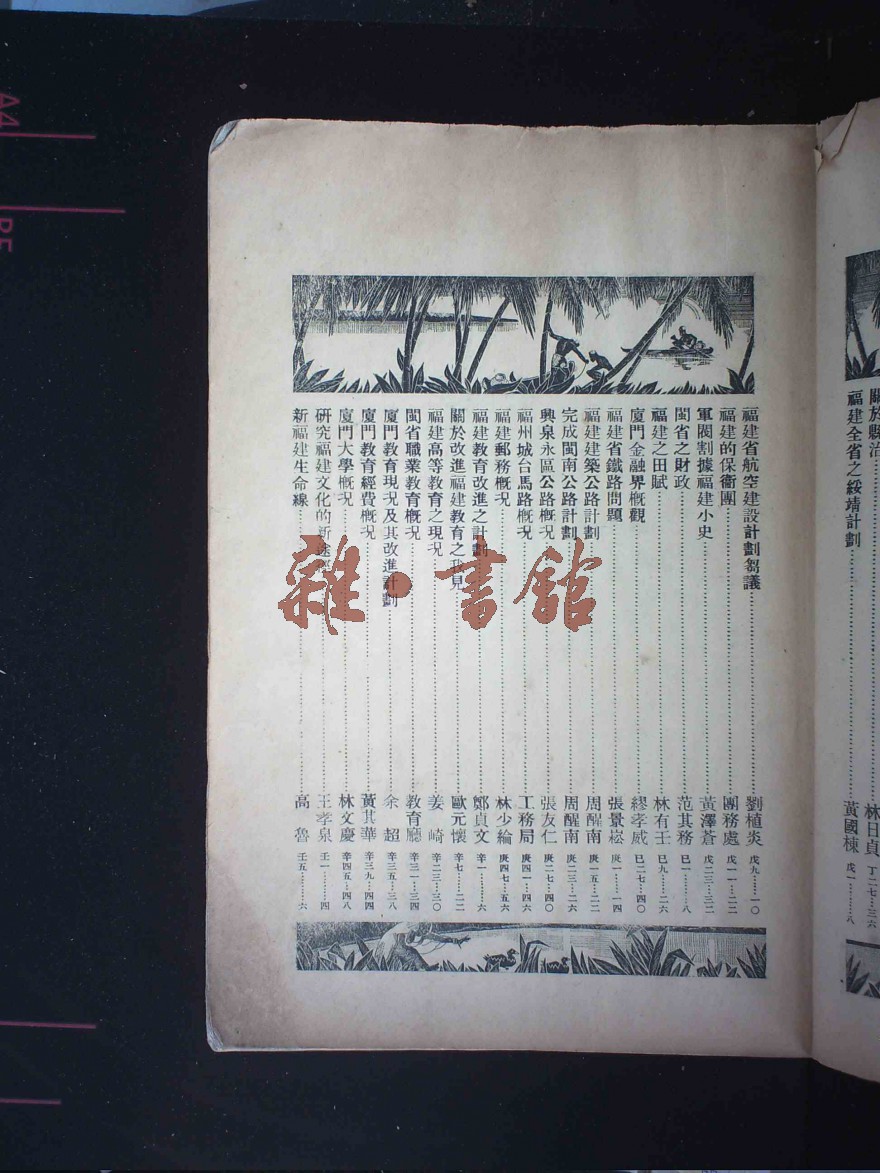 關於縣治……林日貞 丁二七……三六
福建全省之綏靖計劃……黃國棟 戊一……八
福建省航空建設計劃芻議……劉植炎 戊九……一〇
福建的保衛團……團務處 戊一一……二二
軍閥割據福建小史……黃澤蒼 戊二三……三二
閩省之財政……范其務 巳一……八
福建之田賦……林有壬 巳九……二六
廈門金融界概觀……繆孝威 巳二七……四〇
福建省鐵路問題……張景崧 庚一……一四
福建建築公路計劃……周醒南 庚一五……二二
完成閩南公路計劃……周醒南 庚二三……二六
興泉永區公路概况……張友仁 庚二七……四〇
福州城台馬路概况……工務局 庚四一……四六
福建郵務概况……林少綸 庚四七……五六
福建教育改進之計劃……鄭貞文 辛一……六
關於改進福建教育之我見……歐元懷 辛七……二二
福建高等教育之現况……姜琦 辛二三……三〇
閩省職業教育概况……教育廳 辛三一……三四
廈門教育現况及其改進計劃……余超 辛三五……三八
廈門教育經費概况……黃其華 辛三九……四四
廈門大學概况……林文慶 辛四五……四八
研究福建文化的新途徑……王孝泉 壬一……四
新福建生命線……高魯 壬五……六
雜·書館
A4